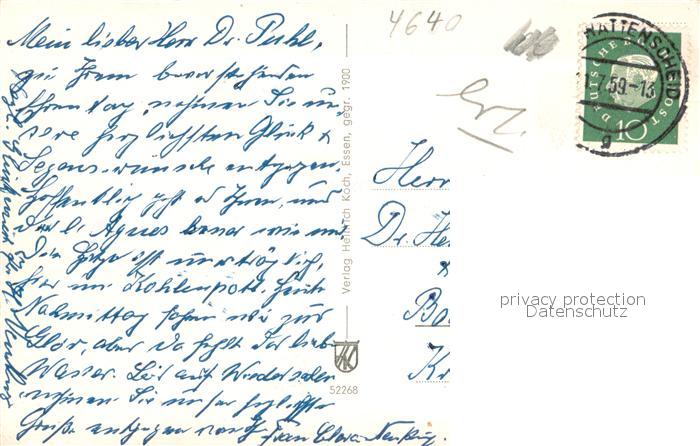 4640
Mein lieber Herr Dr. Puhl,
zu Ihrem bevorstehenden
Ehrentag, nehmen Sie un-
sere herzlichsten Glück &
Segenswünsche entgegen.
Hoffentlich geht es Ihnen, und
der l. Agnes
Die Hitze ist unerträglich,
hier im Kohlenpott. Heute
Nachmittag fahren wir zur
aber da fehlt das liebe
Wasser. Bis auf Wiedersehen
nehmen Sie unsere herzlichste
Grüße entgegen Frau Clara
Verlag Heinrich Koch, Essen, gegr. 1900
52268
WATTENSCHEID
7.59-13
a
DEUTSCHE BUNDESPOST
10
Herr
Dr. He
Bo
Kr
privacy protection
Datenschutz